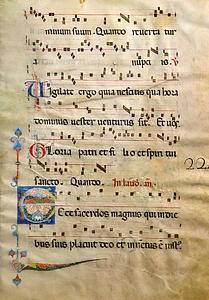 minum suum. Quando reverta tur
nupcis. V
Vigilate ergo quia nescitis qua hora
dominus vester venturus sit. Et vos.
Gloria patri et fi lio et spiri tui
sancto. Quando. In laud. an.
Ecce sacerdos magnus qui in die
bus suis placuit deo et inventus e
22